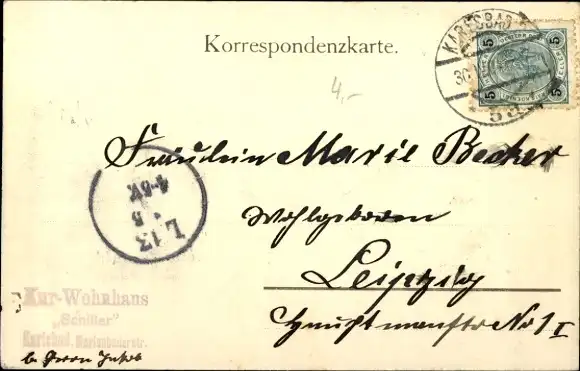 Korrespondenzkarte.
KARLSBAD
30
5 5
5 5
4,-
Fräulein Marie Becker
Wohlgeboren
Leipzig
Hauptmannstr No 1 I
L 13
5
4-5 V.
Kur-Wohnhaus
„Schiller"
Karlsbad, Marienbaderstr.
b. Herrn Jakob